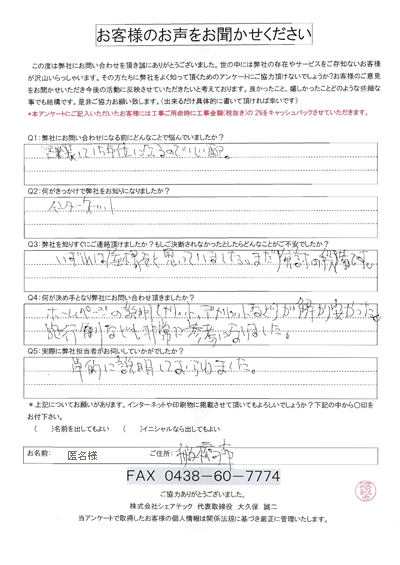 お客様のお声をお聞かせください
この度は弊社にお問い合わせを頂き誠にありがとうございました。世の中には弊社の存在やサービスをご存知ないお客様
が沢山いらっしゃいます。その方たちに弊社をよく知って頂くためのアンケートにご協力頂けないでしょうか？お客様のご意見
をお聞かせいただき今後の活動に反映させていただきたいと考えております。良かったこと、嬉しかったことどのような些細な
事でも結構です。是非ご協力お願い致します。（出来るだけ具体的に書いて頂ければ幸いです）
*本アンケートにご記入いただいたお客様には工事ご用命時に工事金額（税抜き）の2%をキャッシュバックさせていただきます。
Q1：弊社にお問い合わせになる前にどんなことで悩んでいましたか？
Q2：何がきっかけで弊社をお知りになりましたか？
インターネット
Q3：弊社を知りすぐにご連絡頂けましたか？もしご決断されなかったとしたらどんなことがご不安でしたか？
いずれはと思っていましたまだ検討の段階です。
Q4：何が決め手となり弊社にお問い合わせ頂きましたか？
ホームページの説明（メリット、デメリットなど）が解り安かった。
施行例なども非常に参考になりました。
Q5：実際に弊社担当者がお伺いしていかがでしたか？
に説明しておられました。
＊上記についてお願いがあります。インターネットや印刷物に掲載させて頂いてもよろしいでしょうか？下記の中から〇印を
お付下さい。
（　）名前を出してもよい　（　）イニシャルなら出してもよい
お名前： 匿名様 ご住所： 船橋市
FAX 0438-60-7774
ご協力ありがとうございました。
株式会社シェアテック 代表取締役 大久保 誠二
当アンケートで取得したお客様の個人情報は関係法規に基づき厳正に管理いたします。